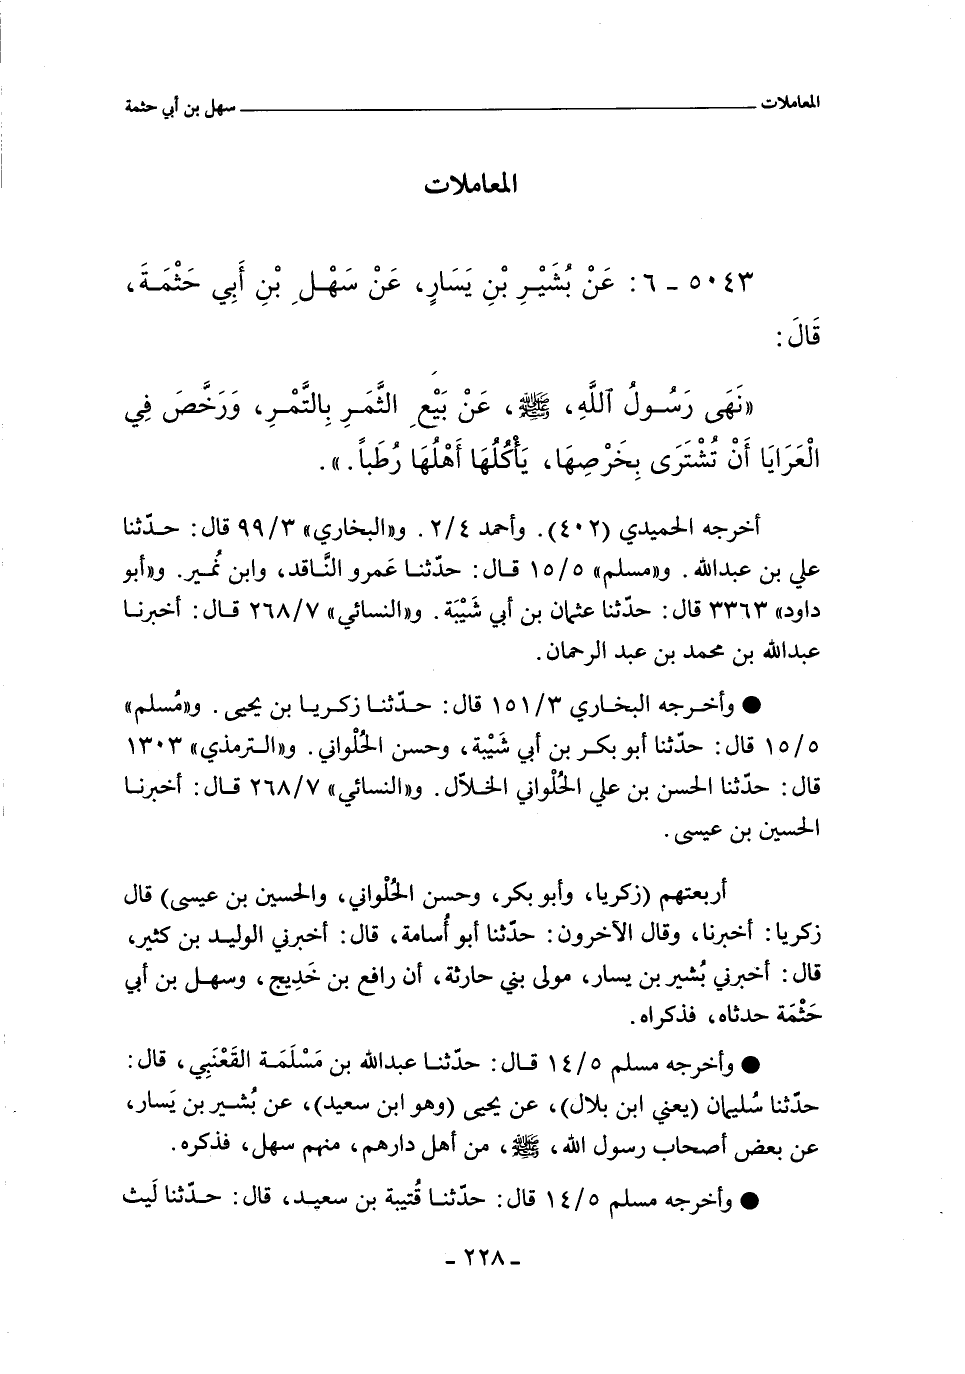 المعاملات ــــــــــ سهل بن أبي حثمة
المعاملات
٥٠٤٣ ـ ٦: عَنْ بُشَيْرِ بْنِ يَسَارٍ، عَنْ سَهْلِ بْنِ أَبِي حَثْمَةَ،
قَالَ:
«نَهَى رَسُولُ ٱللَّهِ، ﷺ، عَنْ بَيْعِ الثَّمَرِ بِالتَّمْرِ، وَرَخَّصَ فِي
الْعَرَايَا أَنْ تُشْتَرَى بِخَرْصِهَا، يَأْكُلُهَا أَهْلُهَا رُطَباً.».
أخرجه الحميدي (٤٠٢). وأحمد ٢/٤. و«البخاري» ٩٩/٣ قال: حدّثنا
علي بن عبدالله. و«مسلم» ١٥/٥ قال: حدّثنا عَمرو النَّاقد، وابن نُمير. و«أبو
داود» ٣٣٦٣ قال: حدّثنا عثمان بن أبي شَيْبَة. و«النسائي» ٢٦٨/٧ قال: أخبرنا
عبدالله بن محمد بن عبد الرحمان.
● وأخرجه البخاري ١٥١/٣ قال: حدّثنا زكريا بن يحيى. و«مُسلم»
١٥/٥ قال: حدّثنا أبو بكر بن أبي شَيْبة، وحسن الحُلْواني. و«الترمذي» ١٣٠٣
قال: حدّثنا الحسن بن علي الحُلْواني الخلاّل. و«النسائي» ٢٦٨/٧ قال: أخبرنا
الحسين بن عيسى.
أربعتهم (زكريا، وأبو بكر، وحسن الحُلْواني، والحسين بن عيسى) قال
زكريا: أخبرنا، وقال الآخرون: حدّثنا أبو أُسامة، قال: أخبرني الوليد بن كثير،
قال: أخبرني بُشير بن يسار، مولى بني حارثة، أن رافع بن خَدِيج، وسهل بن أبي
حَثْمَة حدثاه، فذكراه.
● وأخرجه مسلم ١٤/٥ قال: حدّثنا عبدالله بن مَسْلَمَة القَعْنَبِي، قال:
حدّثنا سُليمان (يعني ابن بلال)، عن يحيى (وهو ابن سعيد)، عن بُشير بن يَسار،
عن بعض أصحاب رسول الله، ﷺ، من أهل دارهم، منهم سهل، فذكره.
● وأخرجه مسلم ١٤/٥ قال: حدّثنا قُتيبة بن سعيد، قال: حدّثنا لَيث
ـ ٢٢٨ ـ